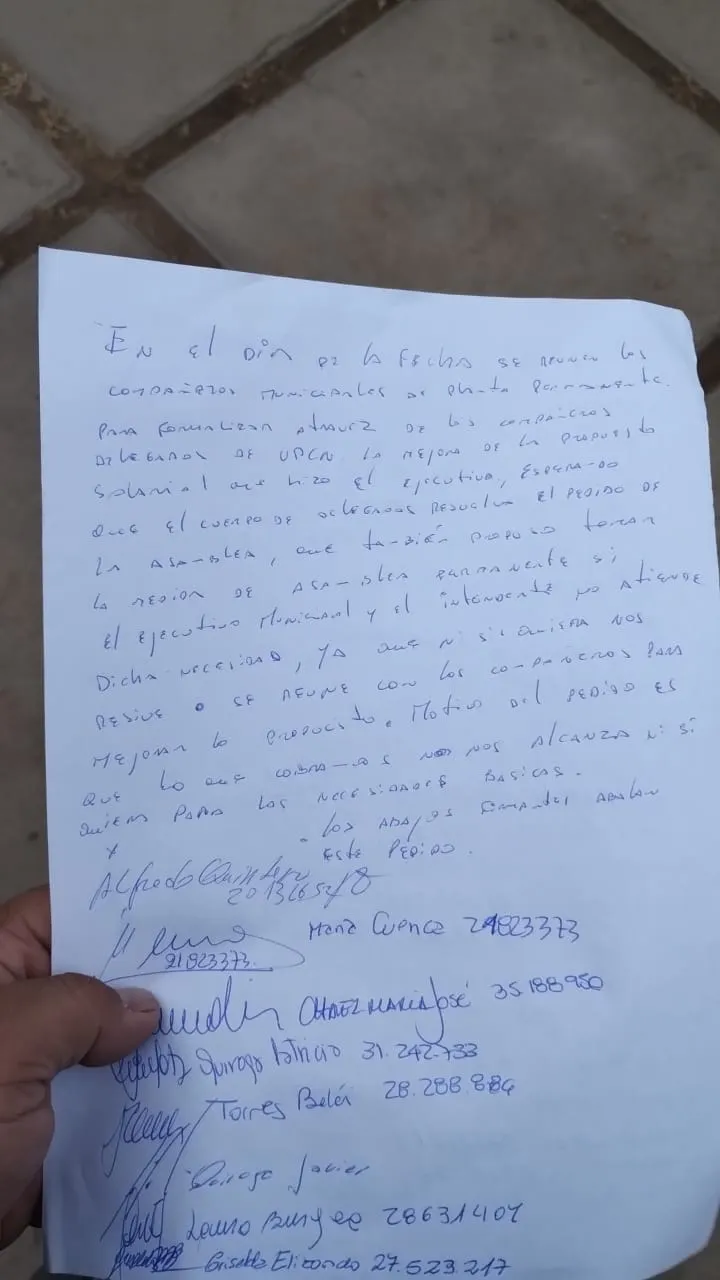 En el Dia de la Fecha se reunen los
compañeros Municipales de Planta Permanente.
Para Formalizar atravez de los compañeros
Delegados de UPCN la mejora de la propuesta
Salarial que hizo el ejecutivo, esperando
que el cuerpo de delegados resuelva el pedido de
la asamblea, que también propuso tomar
la medida de asamblea permanente si
el ejecutivo Municipal y el intendente no atiende
Dicha necesidad, ya que ni siquiera nos
resive o se reune con los compañeros para
Mejorar la propuesta. Motivo del pedido es
que lo que cobramos no nos alcanza ni si
quiera para las necesidades basicas.
x . los abajos firmantes abalan
este pedido.
Alfredo Quintero
21823373 Maria Cuenca 21823373
Maria José 35188950
Quiroga Patricio 31.242.733
Torres Belén 28.288.884
Quiroga Javier
Laura 28631401
Griselda Elizondo 27.523.217